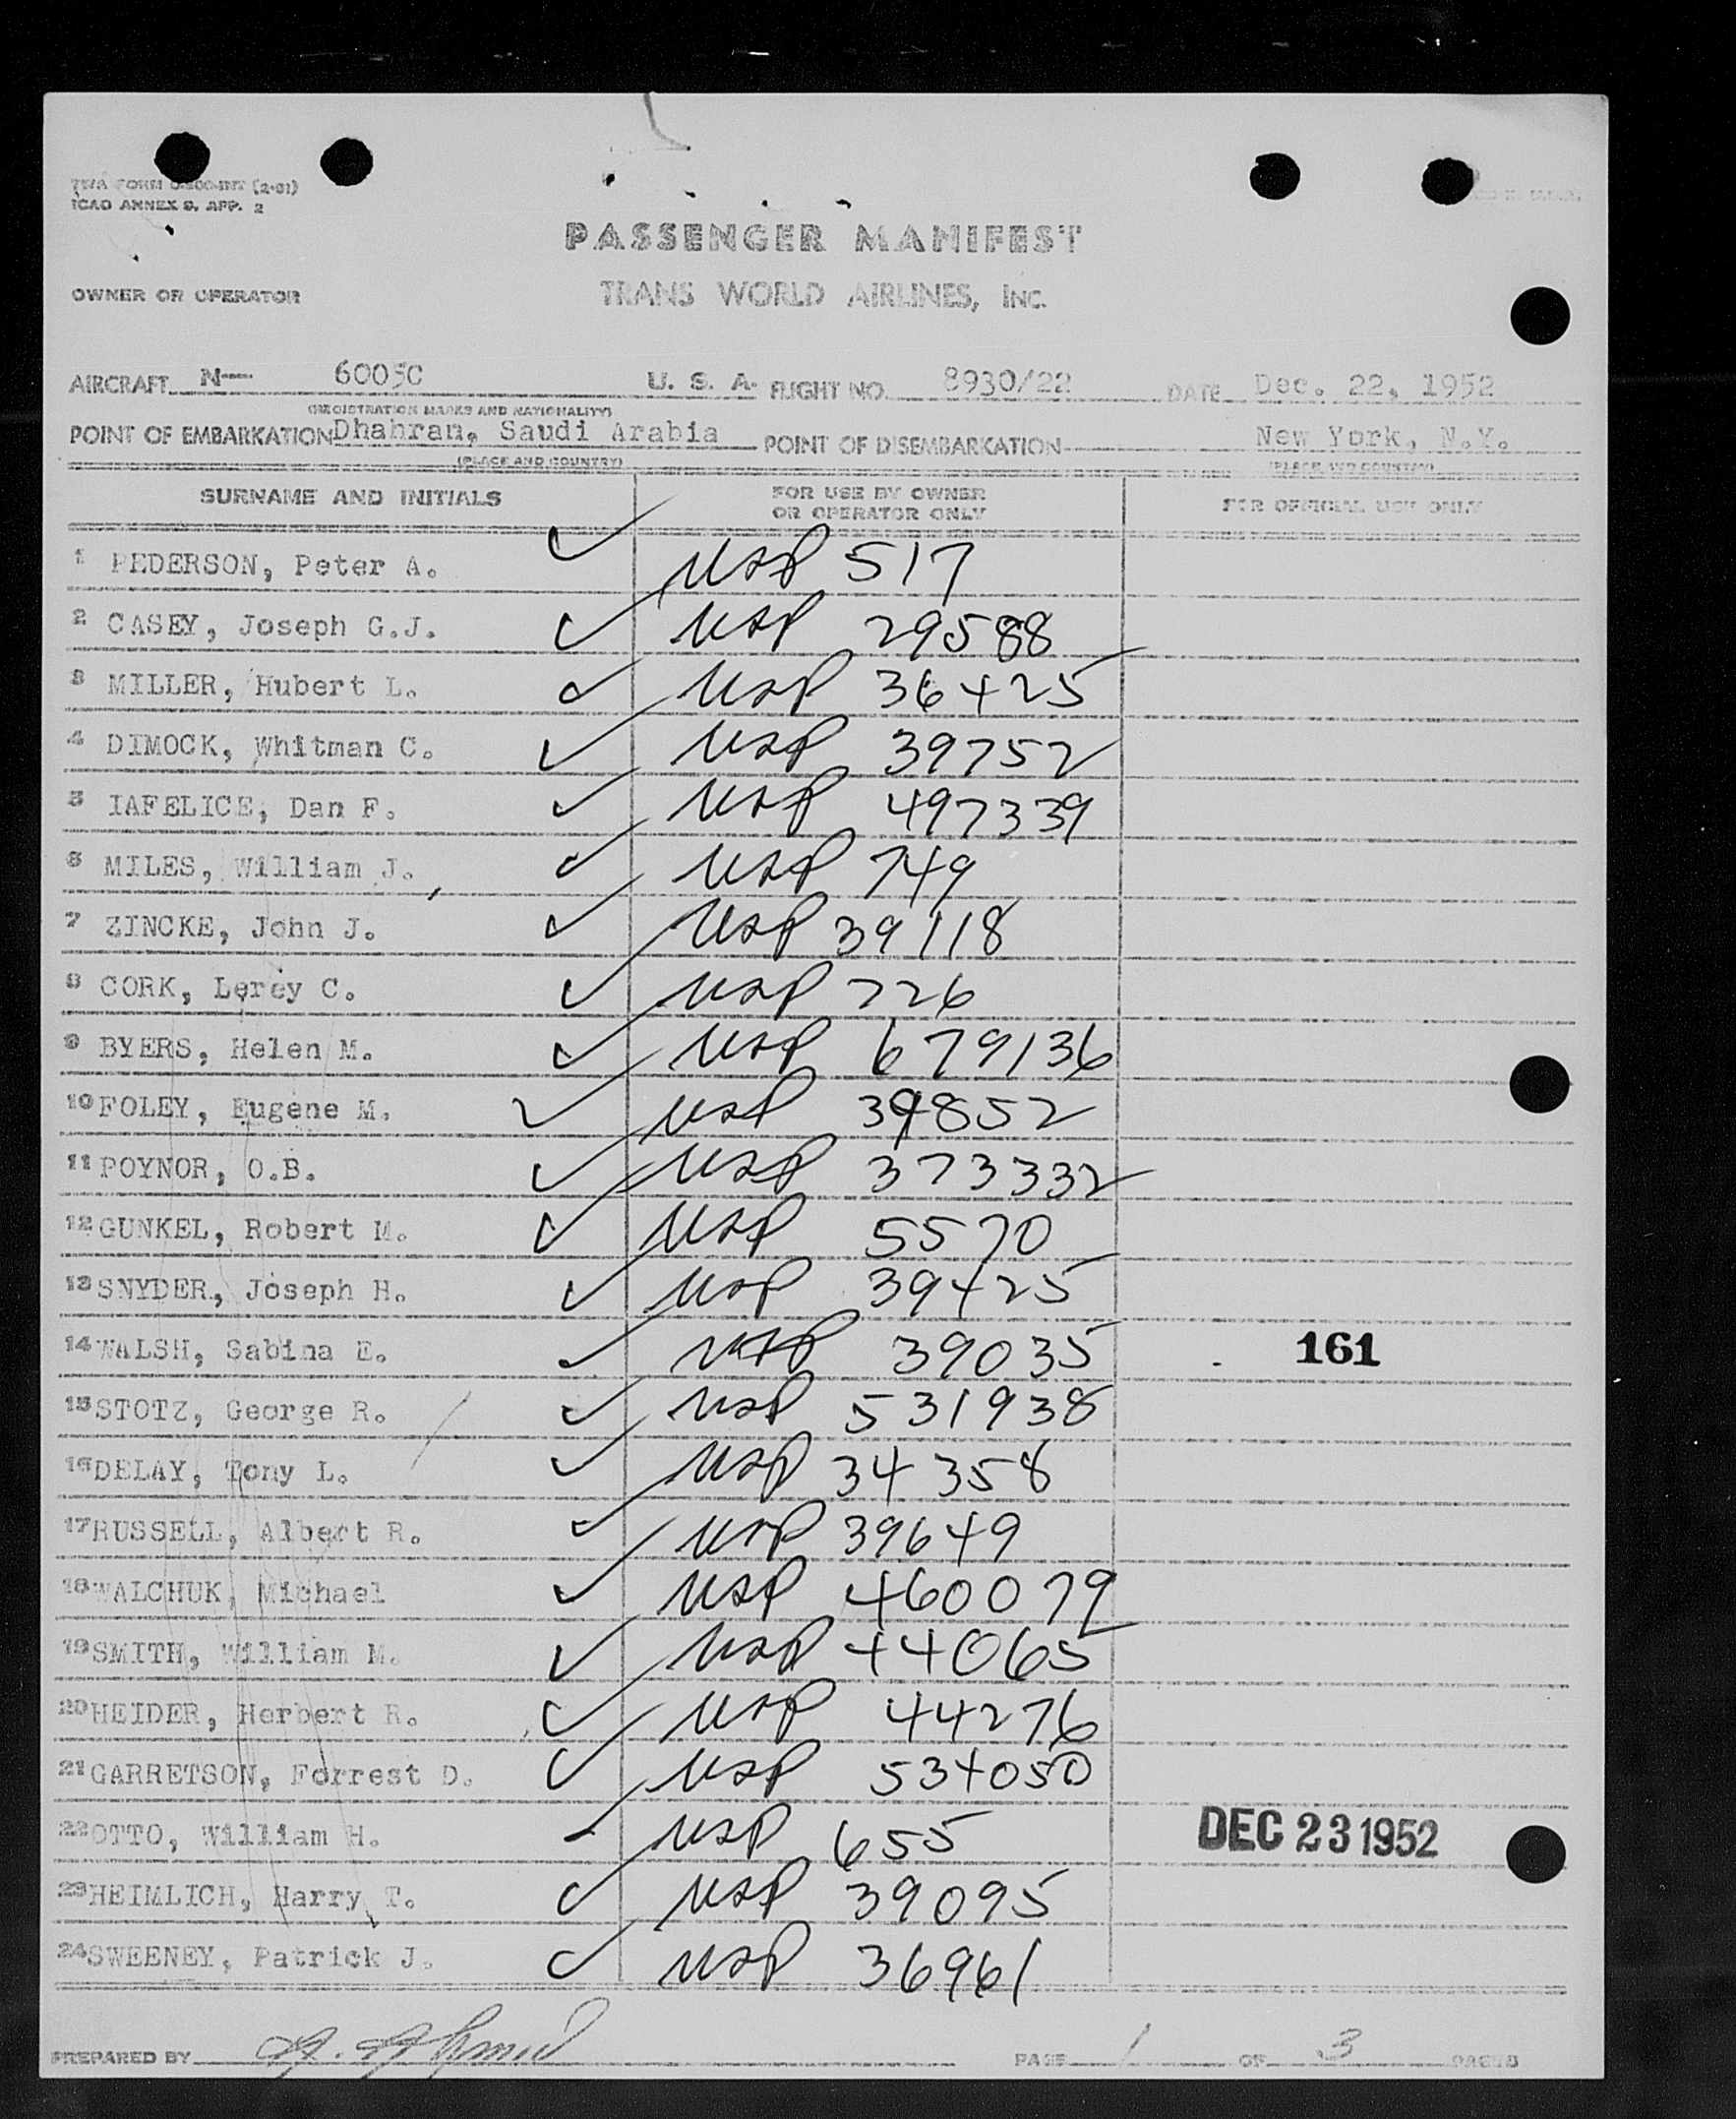 TWA FORM
ICAO ANNEX 9, APP. 2
PASSENGER MANIFEST
OWNER OR OPERATOR TRANS WORLD AIRLINES, INC.
AIRCRAFT N— 6005C U. S. A. FLIGHT NO. 8930/22 DATE Dec. 22, 1952
(REGISTRATION MARKS AND NATIONALITY)
POINT OF EMBARKATION Dhahran, Saudi Arabia POINT OF DISEMBARKATION New York, N.Y.
(PLACE AND COUNTRY) (PLACE AND COUNTRY)
SURNAME AND INITIALS FOR USE BY OWNER OR OPERATOR ONLY FOR OFFICIAL USE ONLY
1 PEDERSON, Peter A. USP 517
2 CASEY, Joseph G.J. USP 29588
3 MILLER, Hubert L. USP 36425
4 DIMOCK, Whitman C. USP 39752
5 IAFELICE, Dan F. USP 497339
6 MILES, William J. USP 749
7 ZINCKE, John J. USP 39118
8 CORK, Leroy C. USP 726
9 BYERS, Helen M. USP 679136
10 FOLEY, Eugene M. USP 39852
11 POYNOR, O.B. USP 373332
12 GUNKEL, Robert M. USP 5570
13 SNYDER, Joseph H. USP 39425
14 WALSH, Sabina E. USP 39035 161
15 STOTZ, George R. USP 531938
16 DELAY, Tony L. USP 34358
17 RUSSELL, Albert R. USP 39649
18 WALCHUK, Michael USP 460079
19 SMITH, William M. USP 44065
20 HEIDER, Herbert R. USP 44276
21 GARRETSON, Forrest D. USP 534050
22 OTTO, William H. USP 655 DEC 23 1952
23 HEIMLICH, Harry T. USP 39095
24 SWEENEY, Patrick J. USP 36961
PREPARED BY PAGE 1 OF 3 PAGES